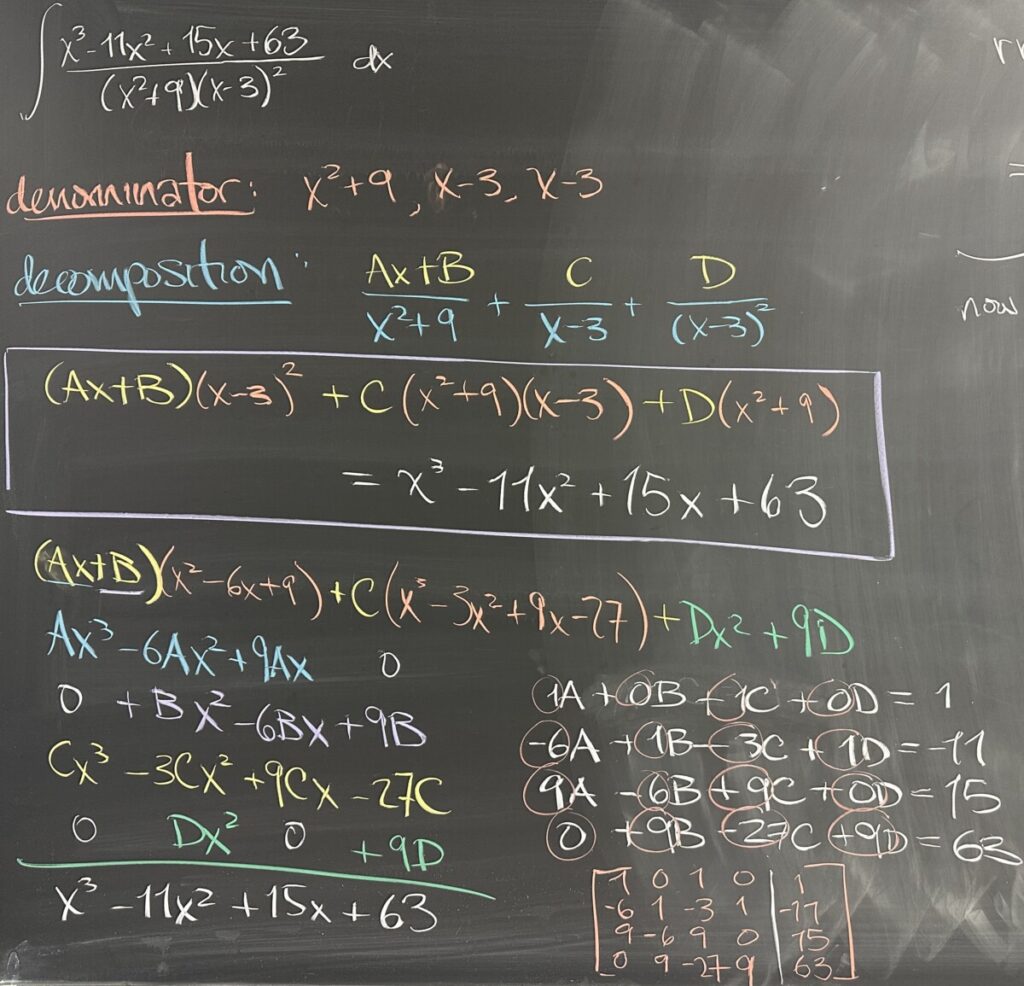 ∫ (x³ - 11x² + 15x + 63)/((x²+9)(x-3)²) dx
denominator: x²+9, x-3, x-3
decomposition: (Ax+B)/(x²+9) + C/(x-3) + D/(x-3)²
(Ax+B)(x-3)² + C(x²+9)(x-3) + D(x²+9)
= x³ - 11x² + 15x + 63
(Ax+B)(x²-6x+9) + C(x³-3x²+9x-27) + Dx² + 9D
Ax³ - 6Ax² + 9Ax 0
0 + Bx² - 6Bx + 9B
Cx³ - 3Cx² + 9Cx - 27C
0 Dx² 0 + 9D
x³ - 11x² + 15x + 63
1A + 0B + 1C + 0D = 1
-6A + 1B - 3C + 1D = -11
9A - 6B + 9C + 0D = 15
0 + 9B - 27C + 9D = 63
1 0 1 0 | 1
-6 1 -3 1 | -11
9 -6 9 0 | 15
0 9 -27 9 | 63
now